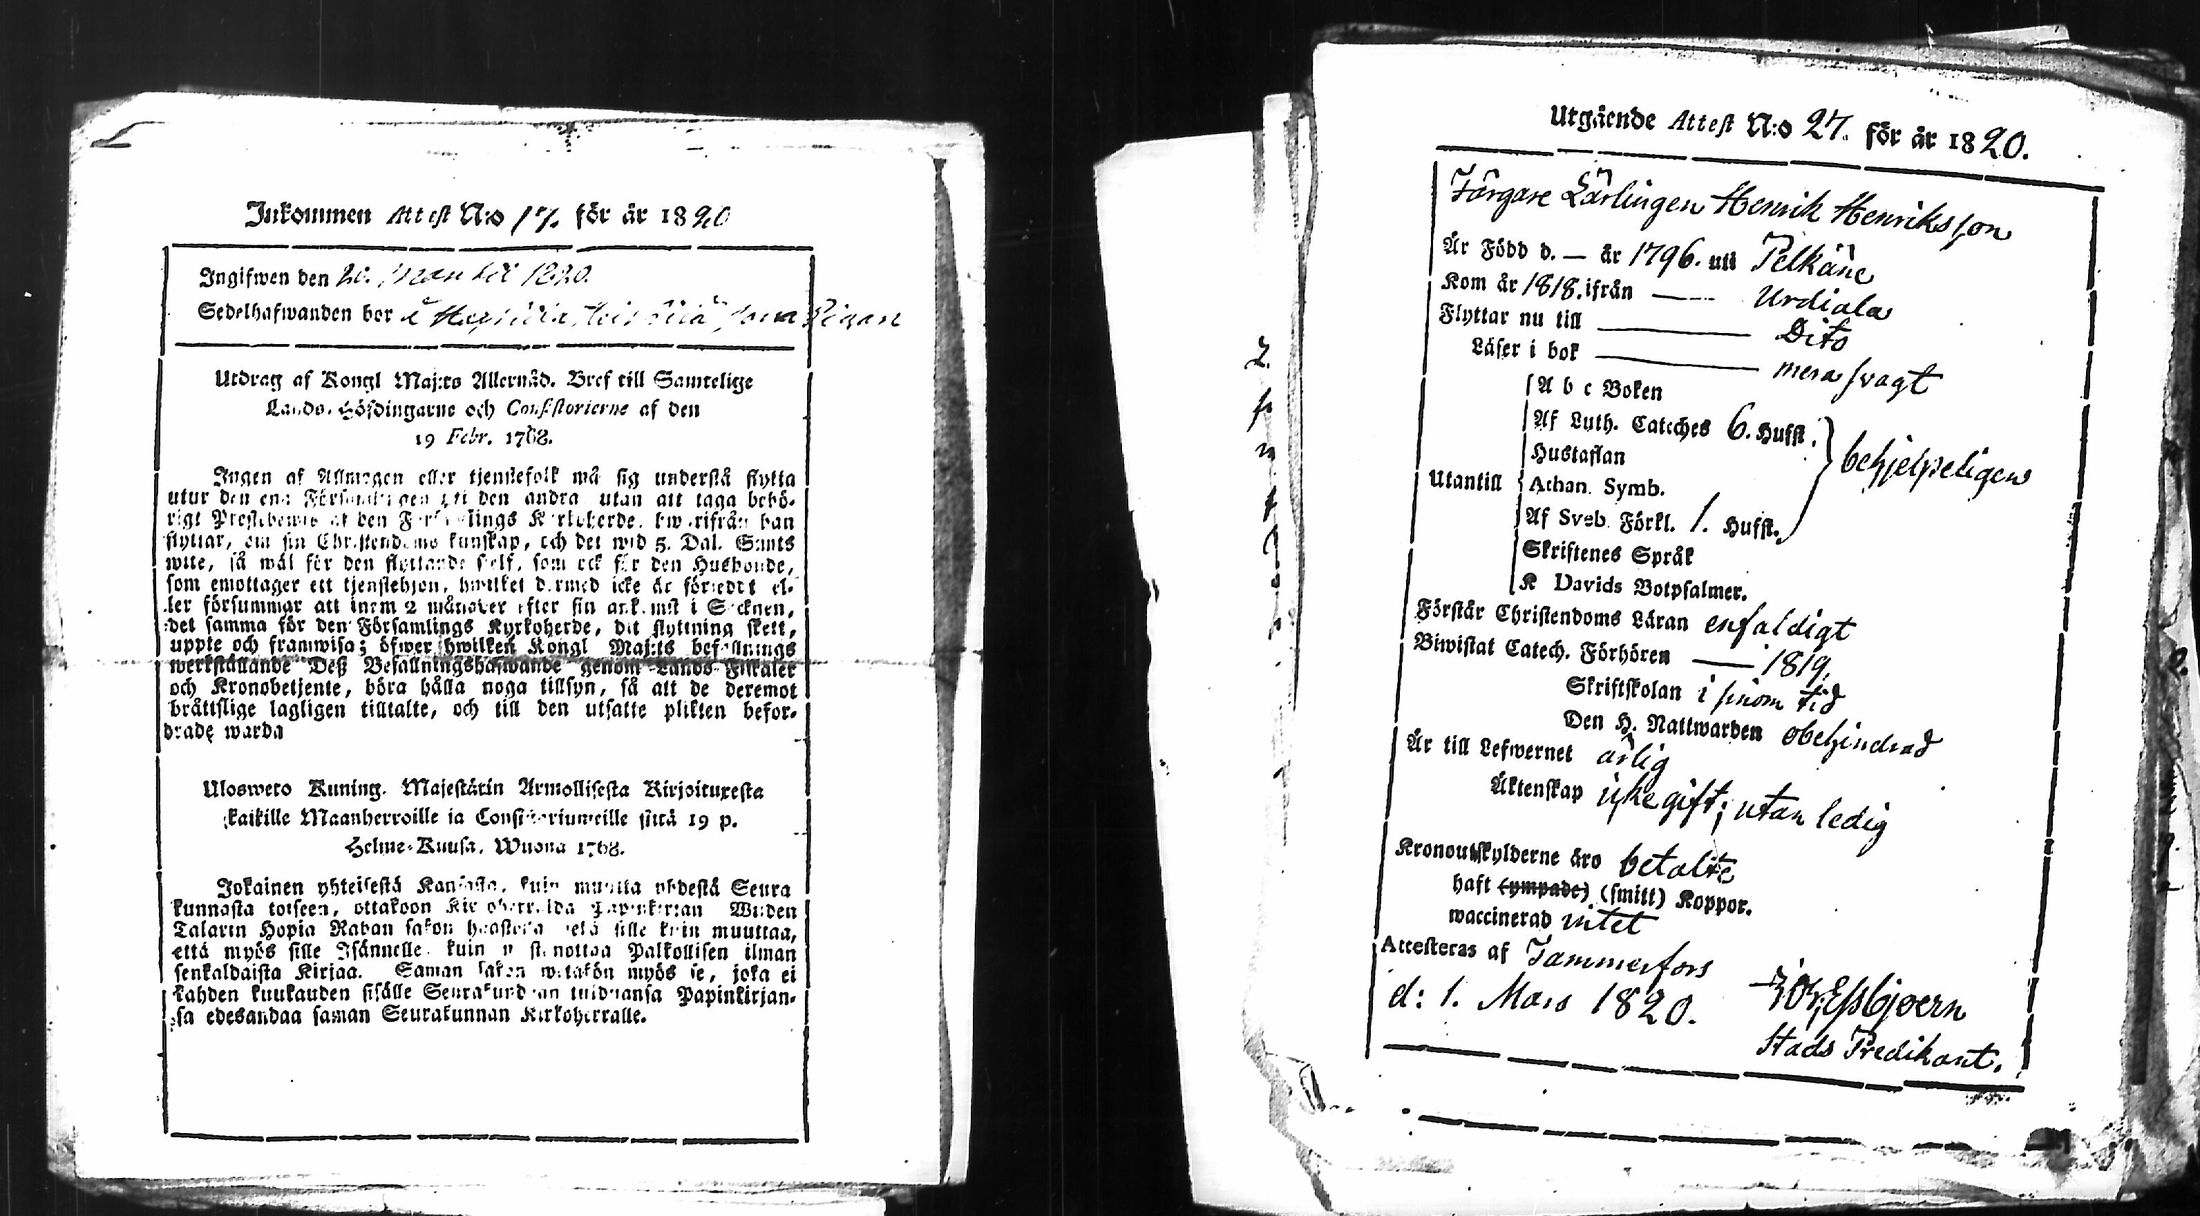 Inkommen Attest N:o 17. för år 1820
Ingifwen den 20. 1820.
Sedelhafwanden bor å
Utdrag af Kongl Maj:ts Allernåd. Bref till Samtelige
Lands-Höfdingarne och Consistorierne af den
19 Febr. 1768.
Ingen af Allmogen eller tjenstefolk må sig understå flytta
utur den ena Församlingen uti den andra utan att taga behö-
rigt Prestebewis af den Församlings Kyrkoherde, hwarifrån han
flyttar, om sin Christendoms kunskap, och det wid 5. Dal. S:mts
wite, så wäl för den flyttande sjelf, som ock för den Husbonde,
som emottager ett tjenstehjon, hwilket dermed icke är försedt el-
ler försummar att inom 2 månader efter sin ankomst i Socknen,
det samma för den Församlings Kyrkoherde, dit flyttning skett,
uppte och framwisa; öfwer hwilken Kongl Maj:ts befallnings
werkställande Deß Befallningshafwande genom Lands-Fiskaler
och Kronobetjente, böra hålla noga tillsyn, så att de deremot
bråttslige lagligen tilltalte, och till den utsatte plikten befor-
drade warda
Ulosweto Kuning. Majestätin Armollisesta Kirjoituxesta
kaikille Maanherroille ja Consistoriumeille siitä 19 p.
Helme-Kuusa, Wuona 1768.
Jokainen yhteisestä Kansasta, kuin muutta yhdestä Seura
kunnasta toiseen, ottakoon Kirkoherralda Papinkirjan Wiiden
Talarin Hopia Rahan sakon haastolla sekä sille kuin muuttaa,
että myös sille Isännelle kuin wastanottaa Palkollisen ilman
senkaldaista Kirjaa. Saman sakon wetäkön myös se, joka ei
kahden kuukauden sisälle Seurakundaan tulduansa Papinkirjan-
sa edesandaa saman Seurakunnan Kirkoherralle.
Utgående Attest N:o 27. för år 1820.
Färgare Lärlingen Henrik Henriksson
Är Född d. — år 1796. uti Pelkäne
Kom år 1818. ifrån —— Urdiala
Flyttar nu till —— Dito
Läser i bok —— mera svagt
A b c Boken
Af Luth. Cateches 6. Hufst.
Hustaflan
Utantill Athan. Symb. behjelpeligen
Af Sveb. Förkl. 1. Hufst.
Skriftenes Språk
K Davids Botpsalmer.
Förstår Christendoms Läran enfaldigt
Biwistat Catech. Förhören —— 1819,
Skriftskolan i sinom tid
Den H. Nattwarden obehindrad
Är till Lefwernet ärlig
Äktenskap icke gift; utan ledig
Kronoutskylderne äro betalte
haft (ympade) (smitt) Koppor.
waccinerad intet
Attesteras af Tammerfors
d: 1. Mars 1820. Essbjoern
Stads Predikant.